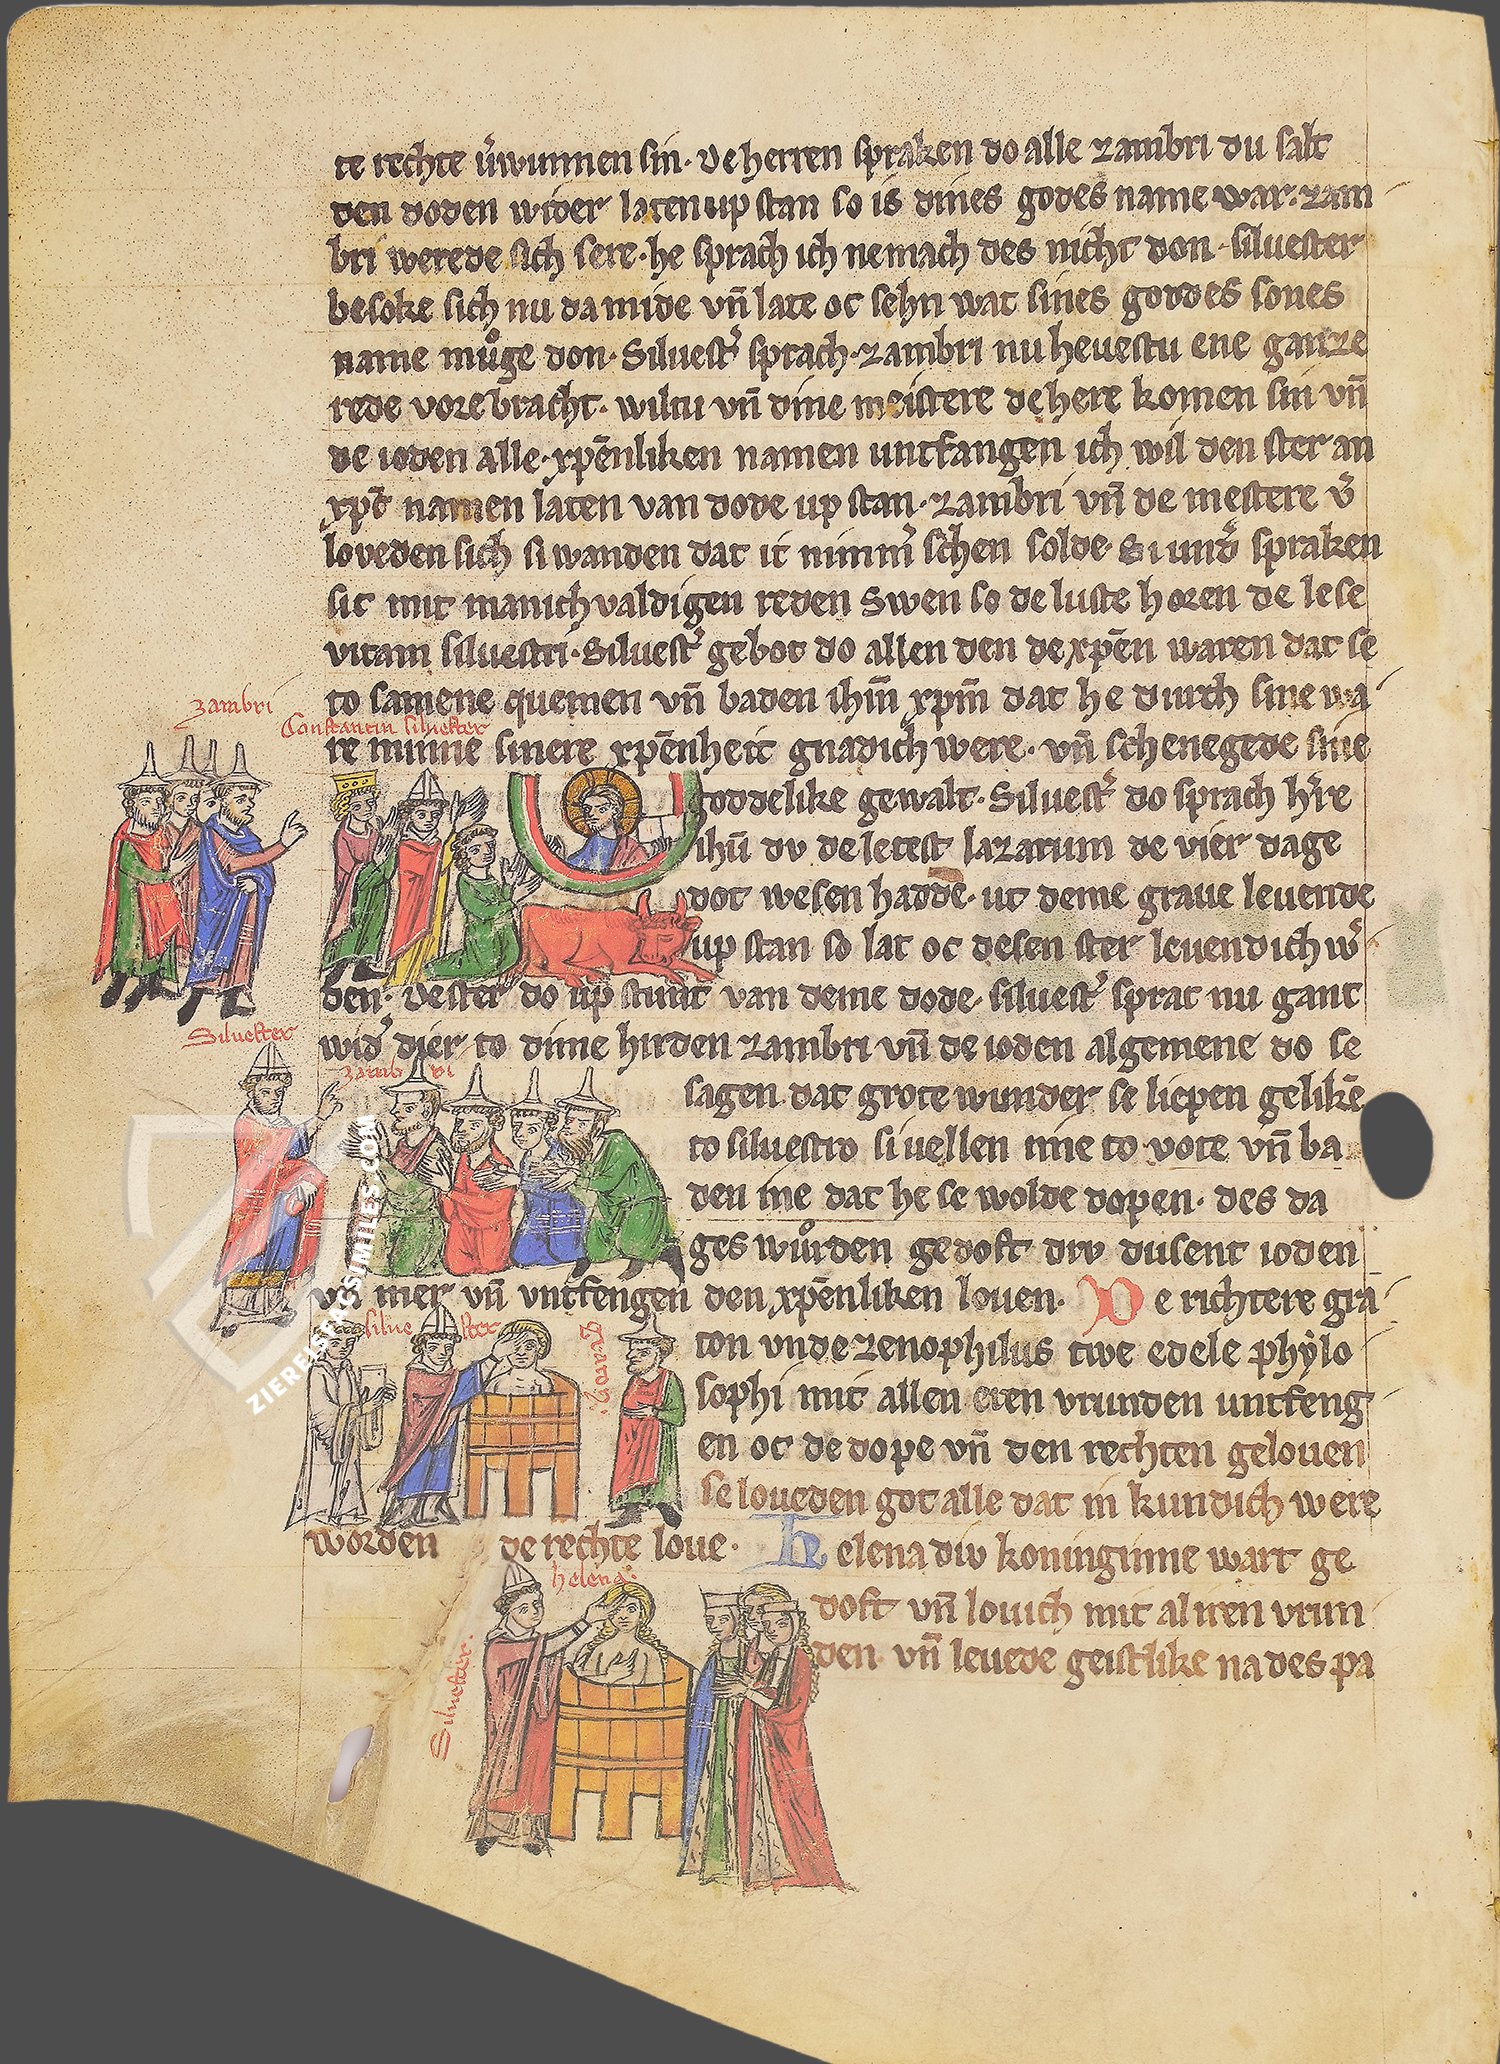 te rechte v̉wunnen sin. De herren spraken do alle zambri du salt
den doden wider laten up stan so is dines godes name war. zam
bri werede sich sere. he sprach ich ne mach des nicht don. silvester
besoke sich nu da mide vn̄ late oc sehn wat sines goddes sones
name mů̊ge don. Silvest̉ sprach. zambri nu hevestu ene ganze
rede vore bracht. wiltu vn̄ dine meistere de here komen sin vn̄
de ioden alle. xp̄enliken namen untfangen ich wil den ster an
xp̄c namen laten van dode up stan. zambri vn̄ de mestere v̉
loveden sich si wanden dat it nimm̉ schen solde. Si und̉ spraken
sic mit manichvaldigen reden Swen so de luste horen de lese
vitam silvestri. Silvest̉ gebot do allen den de xp̄en waren dat se
to samene quemen vn̄ baden ihm̄ xpm̄ dat he durch sine wa
zambri
Constantin silvester
re minne sinere xp̄enheit gnadich were. vn̄ schenegede sine
goddelike gewalt. Silvest̉ do sprach h̉re
ihū du de letest lazarum de vier dage
dot wesen hadde. ut deme grave levende
up stan so lat oc desen ster levendich w̉
den. De ster do up stunt van deme dode. silvest̉ sprac nu ganc
Silvester
wid̉ dier to dime hirden zambri vn̄ de ioden algemene do se
zamb ri
sagen dat grote wunder se liepen gelikē
to silvestro si vellen ime to vote vn̄ ba
den ime dat he se wolde dopen. des da
ges wůrden gedoft driv dusent ioden
vn̄ mer vn̄ vntfengen den xp̄enliken loven. De richtere gra
silve ster
graton.
ton vnde zenophilus twe edele phẏlo
sophi mit allen eren vrunden untfeng
en oc de dope vn̄ den rechten geloven
se loveden got alle dat in kundich were
worden de rechte love. Helena div koninginne wart ge
helena:
doft vn̄ lovich mit al iren vrun
Silvester.
den. vn̄ levede geistlike na des pa
ZIEREISFACSIMILES.COM